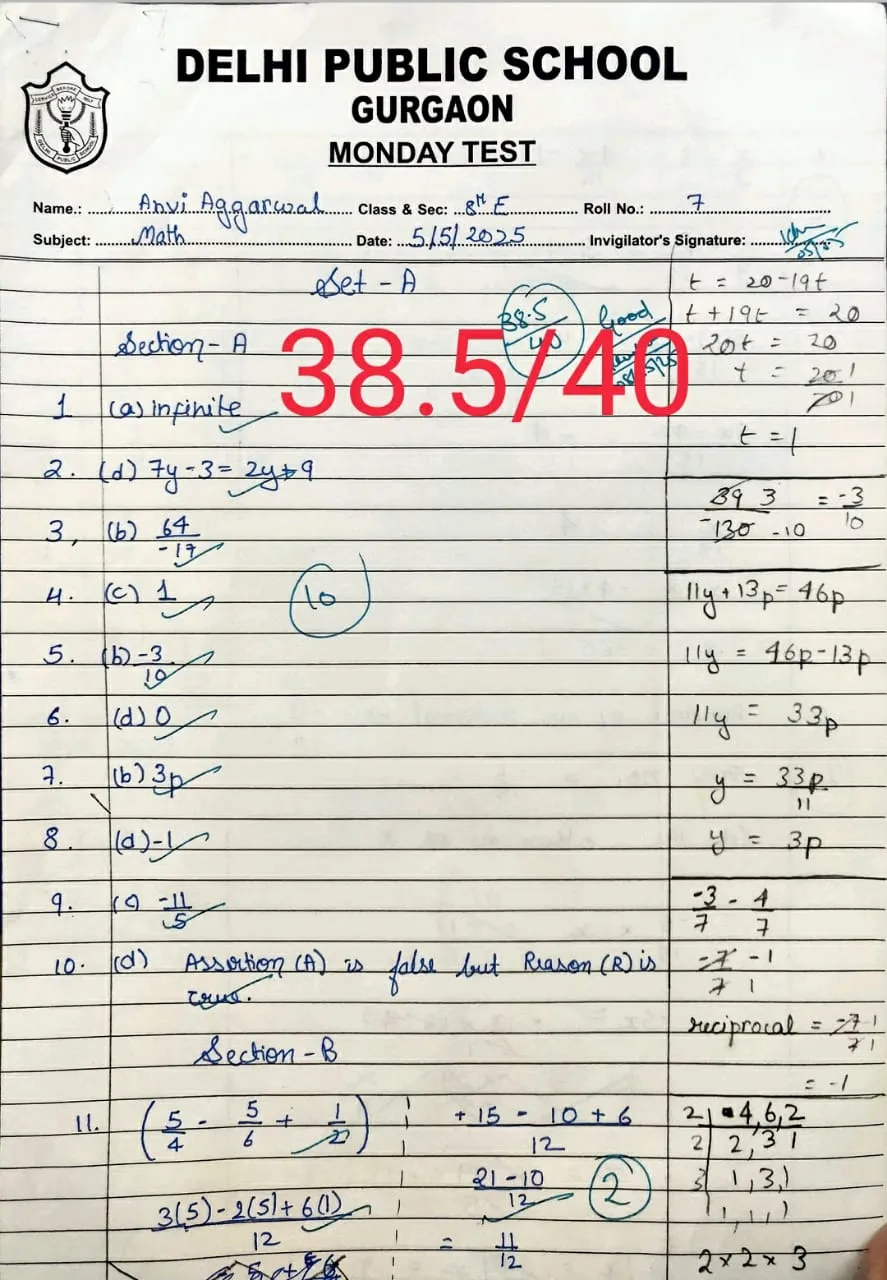 DELHI PUBLIC SCHOOL
GURGAON
MONDAY TEST
SERVICE BEFORE SELF
DELHI PUBLIC SCHOOL
Name.: Anvi Aggarwal Class & Sec: 8th E Roll No.: 7
Subject: Math Date: 5/5/2025 Invigilator's Signature:
Set - A
38.5/40
Good
38.5/40
Section - A
1 (a) infinite
2. (d) 7y - 3 = 2y + 9
3, (b) 64/-17
4. (c) 1
10
5. (b) -3/10
6. (d) 0
7. (b) 3p
8. (d) -1
9. (c) -11/5
10. (d) Assertion (A) is false but Reason (R) is
true.
Section - B
11. (5/4 - 5/6 + 1/2)
3(5) - 2(5) + 6(1)/12
+ 15 - 10 + 6/12
21 - 10/12
2
= 11/12
t = 20 - 19t
t + 19t = 20
20t = 20
t = 20 1/20 1
t = 1
39 3/-130 -10 = -3/10
11y + 13p = 46p
11y = 46p - 13p
11y = 33p
y = 33p/11
y = 3p
-3/7 - 4/7
-7/7 -1/1
reciprocal = -7 1/7 1
= -1
2 | 4, 6, 2
2 | 2, 3, 1
3 | 1, 3, 1
1, 1, 1
2 × 2 × 3